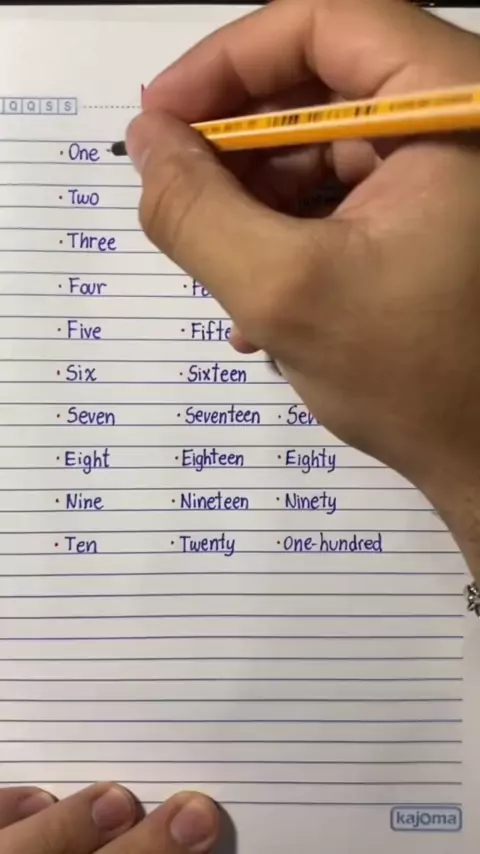 Q Q S S
· One
· Two
· Three
· Four
· Five · Fifte
· Six · Sixteen
· Seven · Seventeen · Sev
· Eight · Eighteen · Eighty
· Nine · Nineteen · Ninety
· Ten · Twenty · One-hundred
kajoma